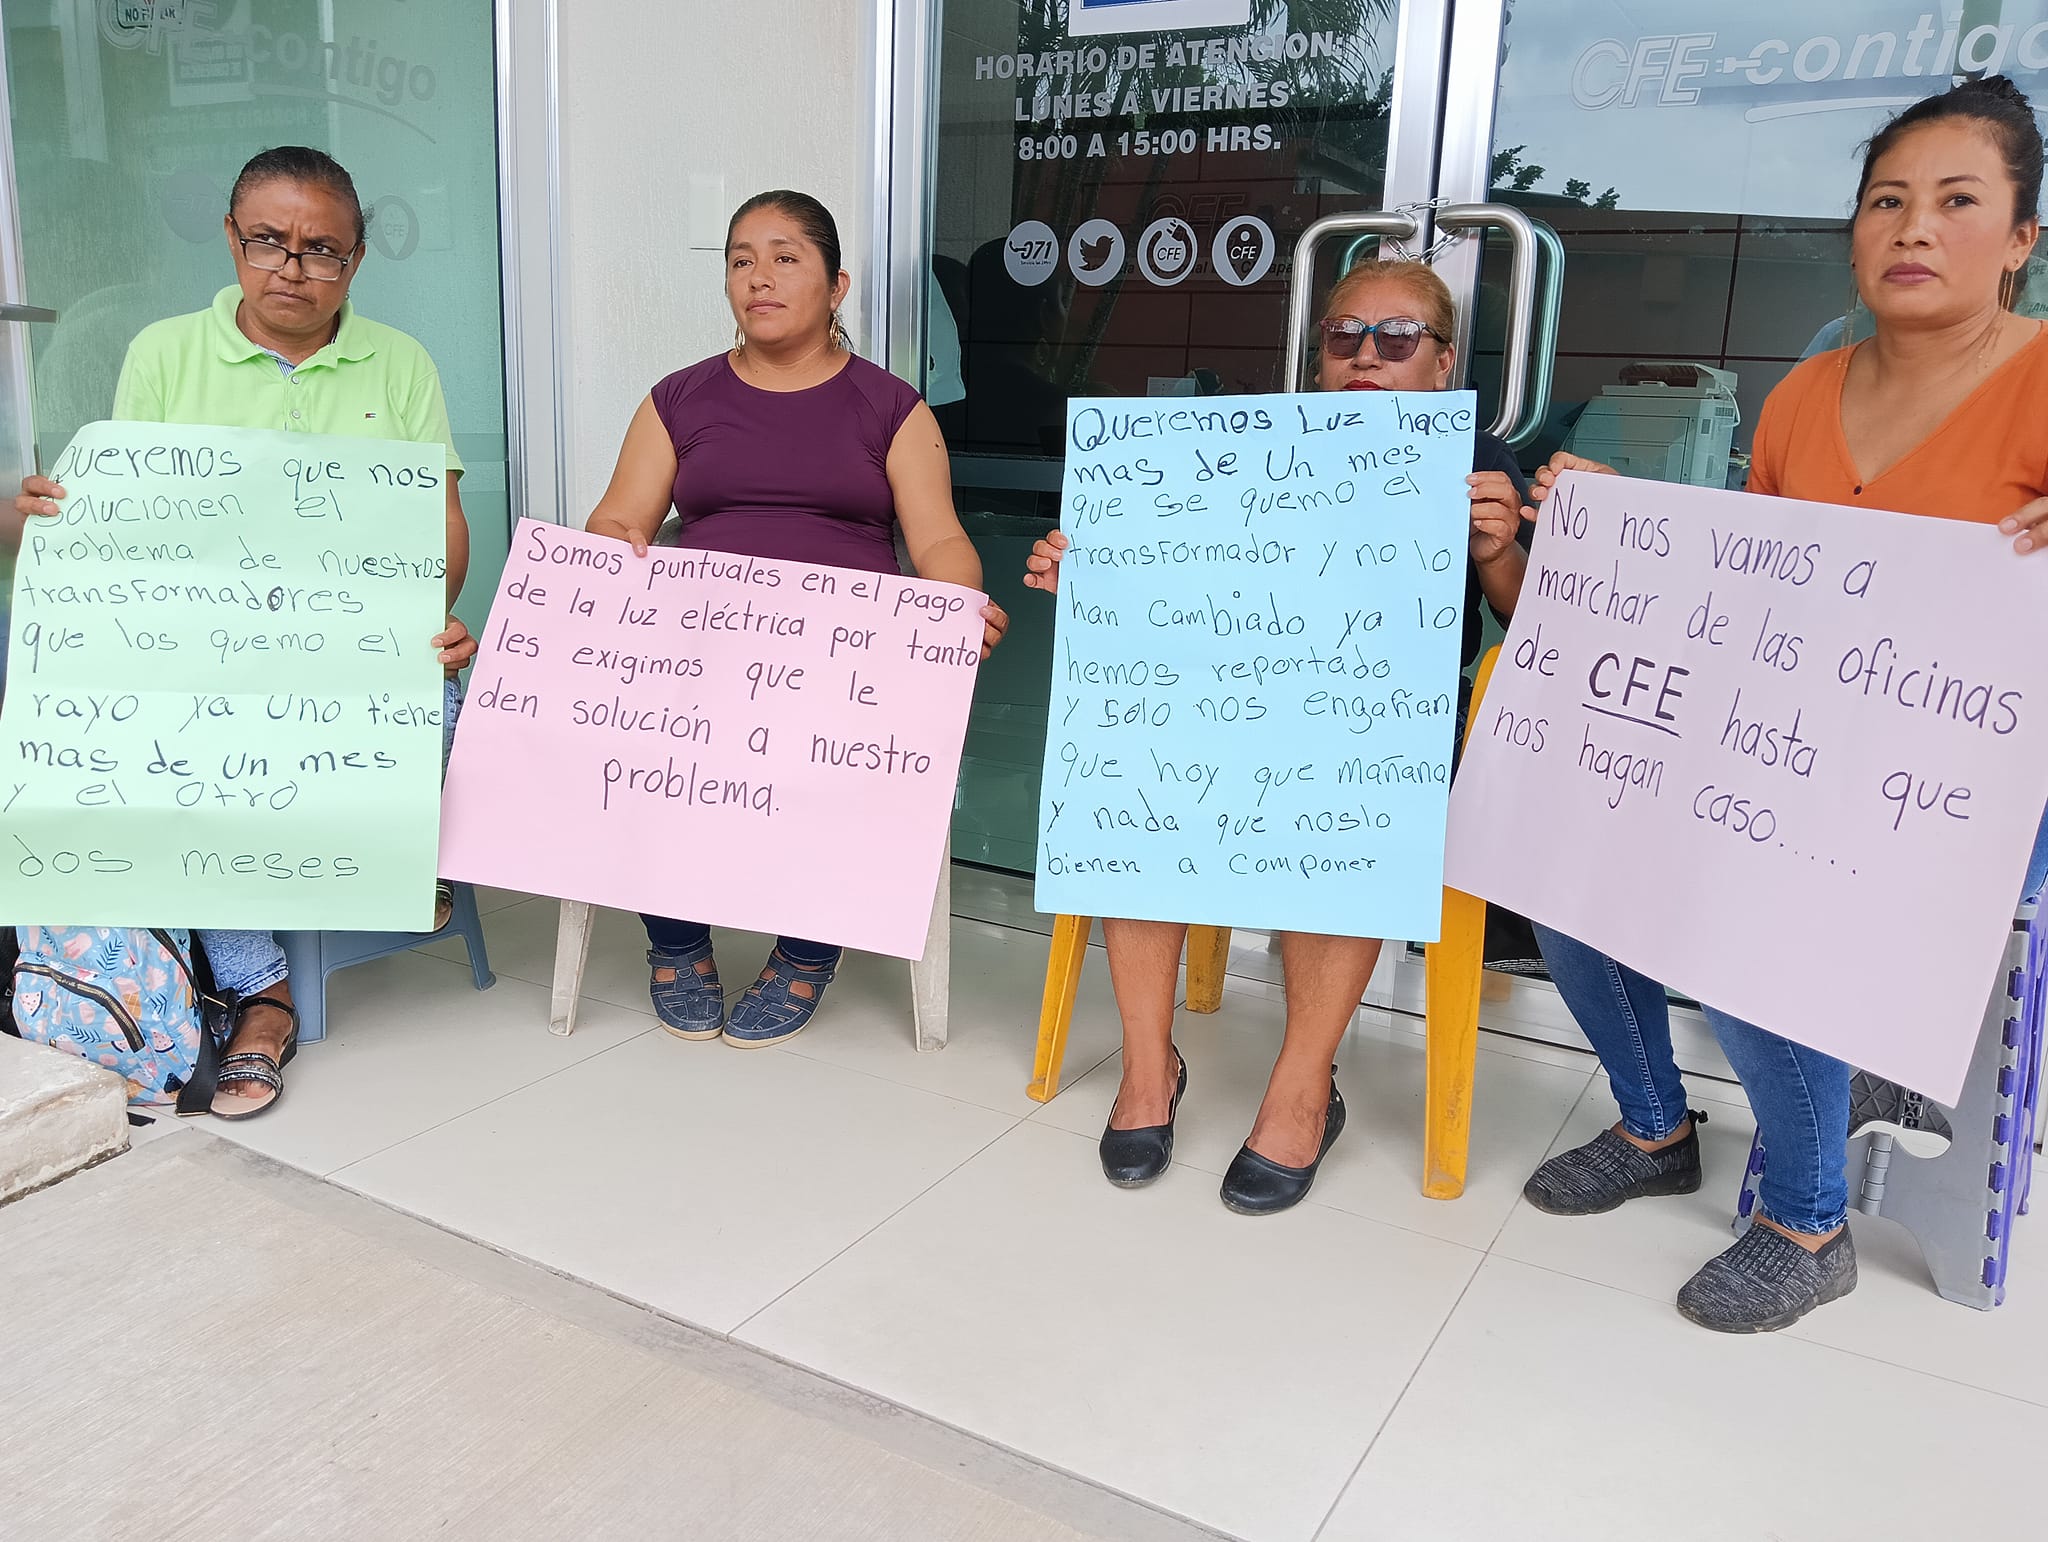 NO FUMAR
CFE contigo
HORARIO DE ATENCION:
LUNES A VIERNES
8:00 A 15:00 HRS.
071
CFE
CFE
CFE
CFE contigo
Queremos que nos
solucionen el
problema de nuestros
transformadores
que los quemo el
rayo ya uno tiene
mas de un mes
y el otro
dos meses
Somos puntuales en el pago
de la luz eléctrica por tanto
les exigimos que le
den solución a nuestro
problema.
Queremos Luz hace
mas de un mes
que se quemo el
transformador y no lo
han cambiado ya lo
hemos reportado
y solo nos engañan
que hoy que mañana
y nada que noslo
bienen a componer
No nos vamos a
marchar de las oficinas
de CFE hasta que
nos hagan caso.....